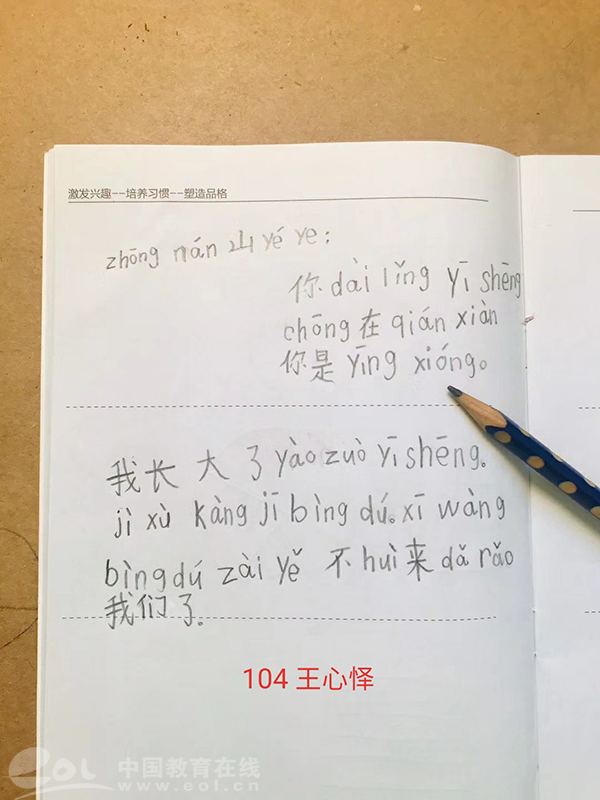 激发兴趣--培养习惯--塑造品格
zhōng nán 山 yé ye：
你 dài lǐng yī shēng
chōng 在 qián xiàn
你是 yīng xióng。
我长大了 yào zuò yī shēng。
jì xù kàng jī bìng dú。xī wàng
bìng dú zài yě 不 huì 来 dǎ rǎo
我们了。
104 王心怿
eol 中国教育在线
www.eol.cn